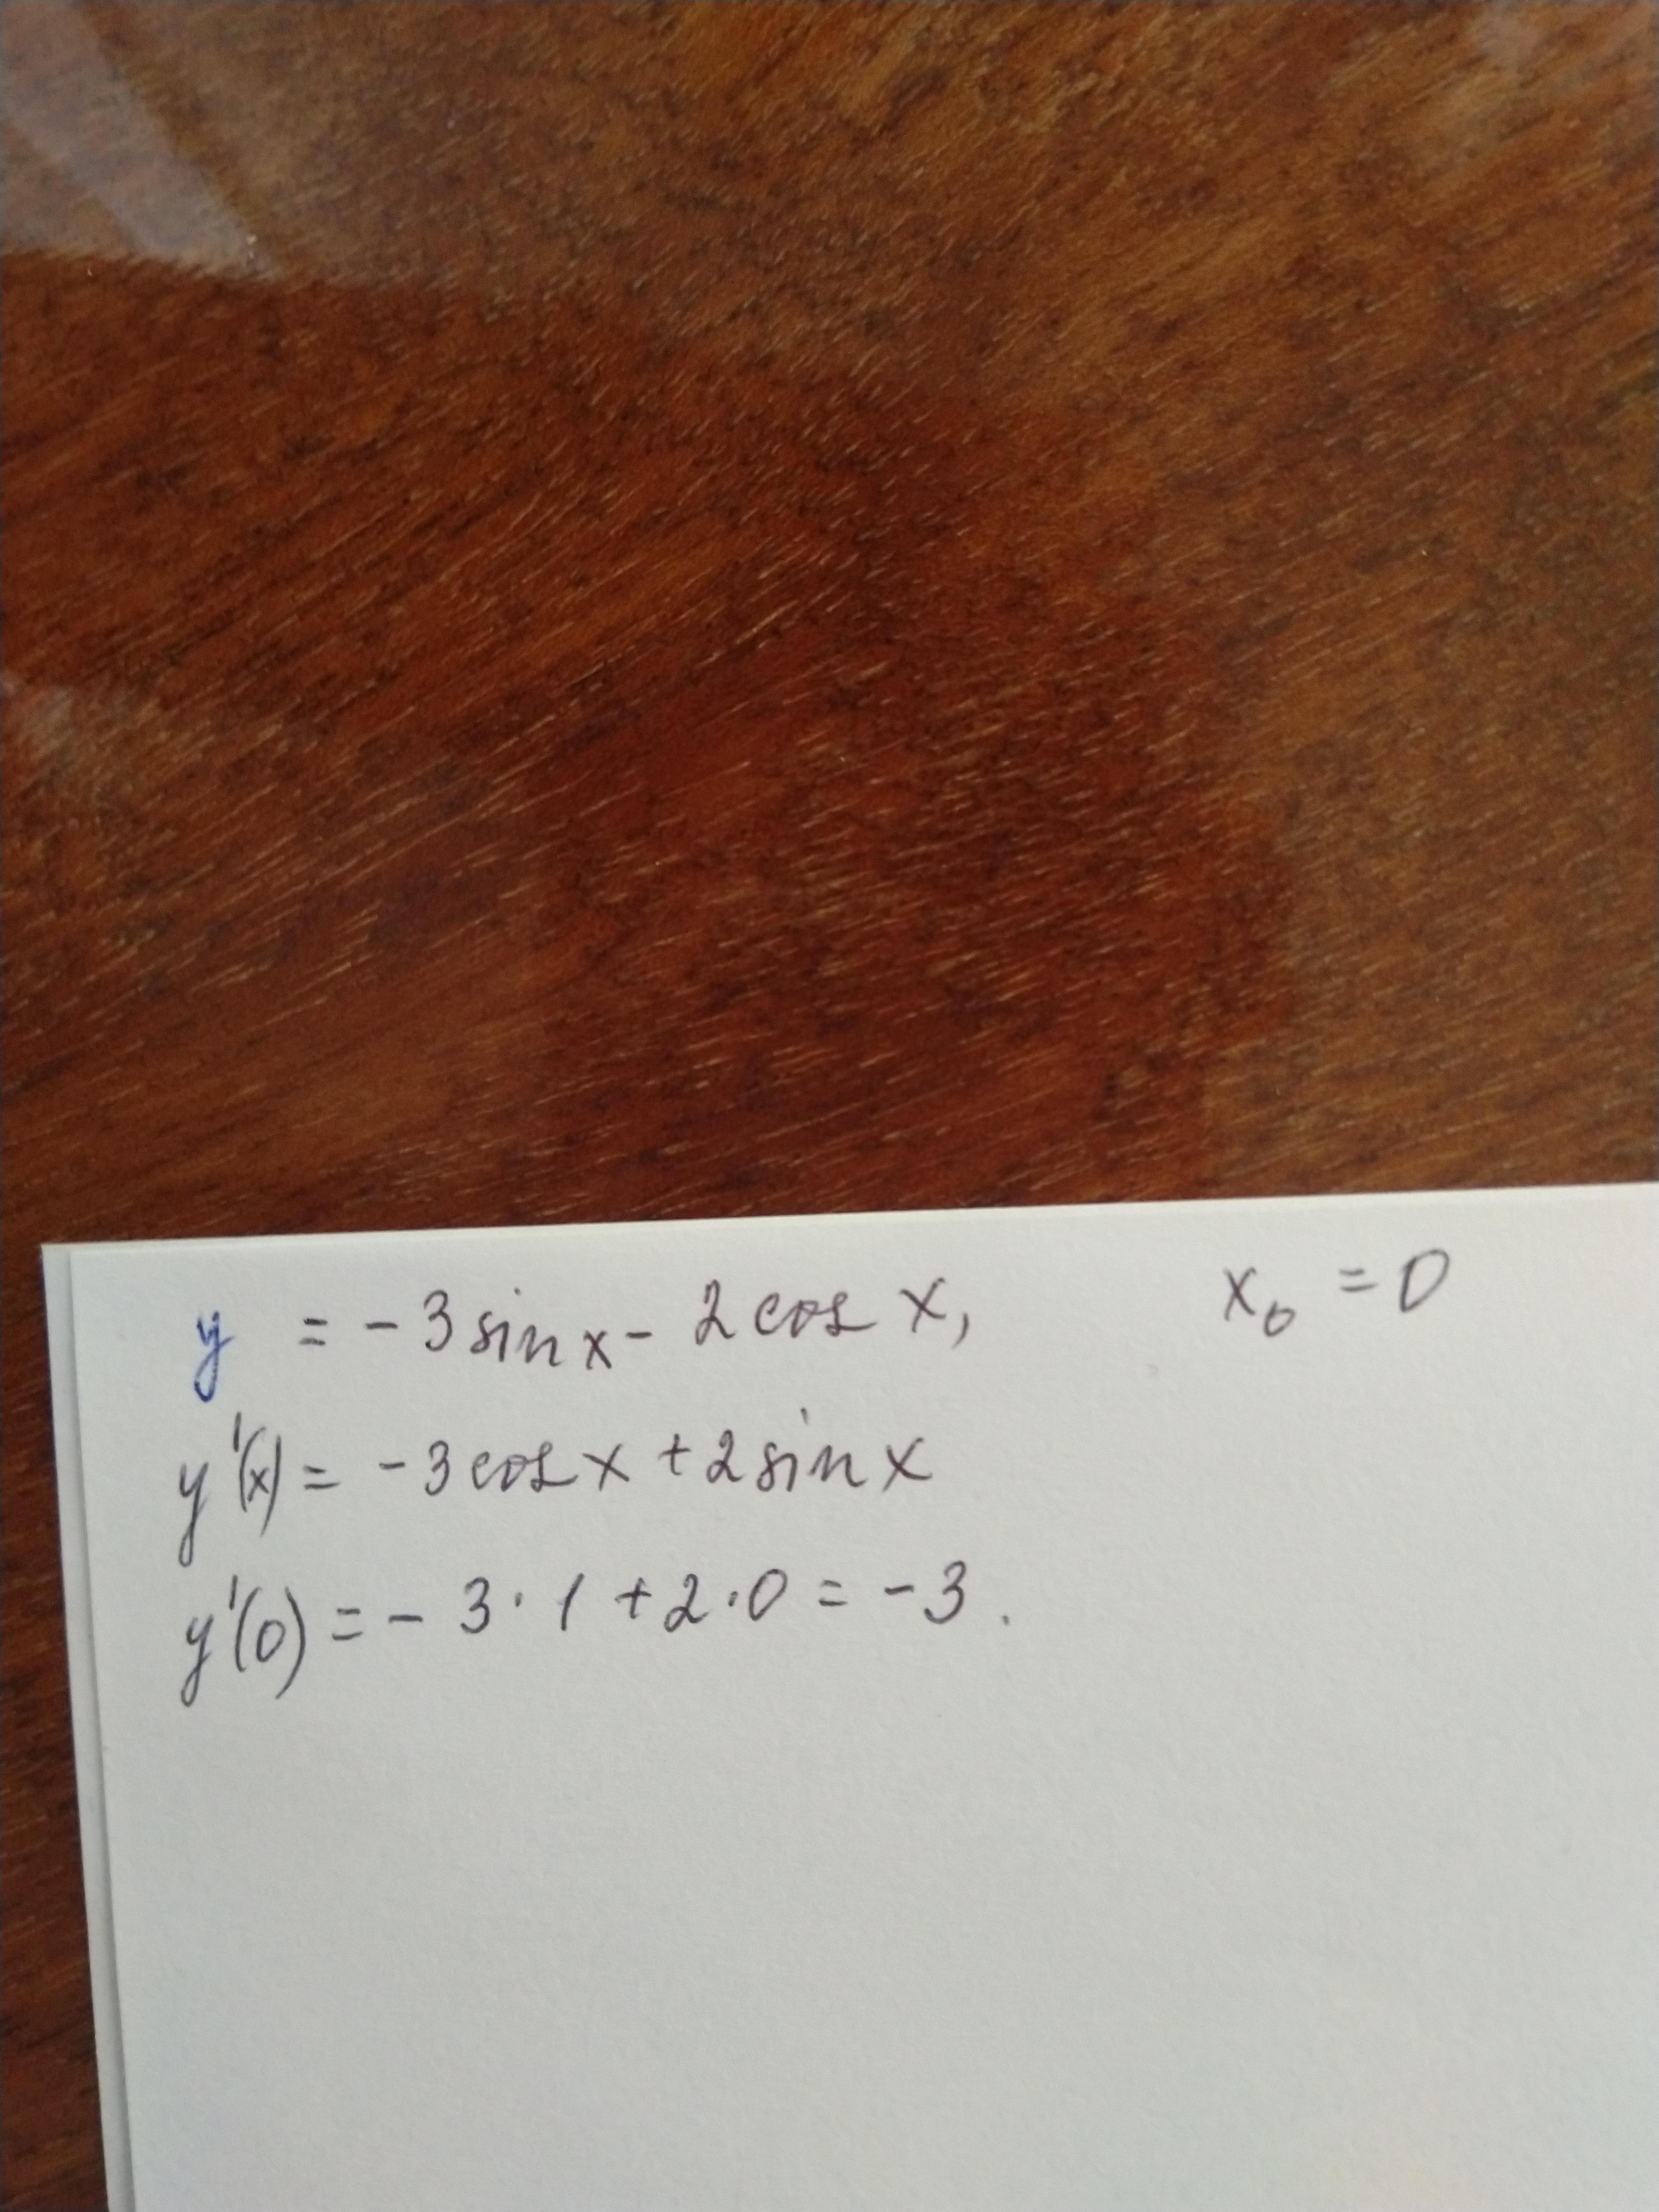 y = -3 sin x - 2 cos x, x₀ = 0
y'(x) = -3 cos x + 2 sin x
y'(0) = - 3 · 1 + 2 · 0 = -3.